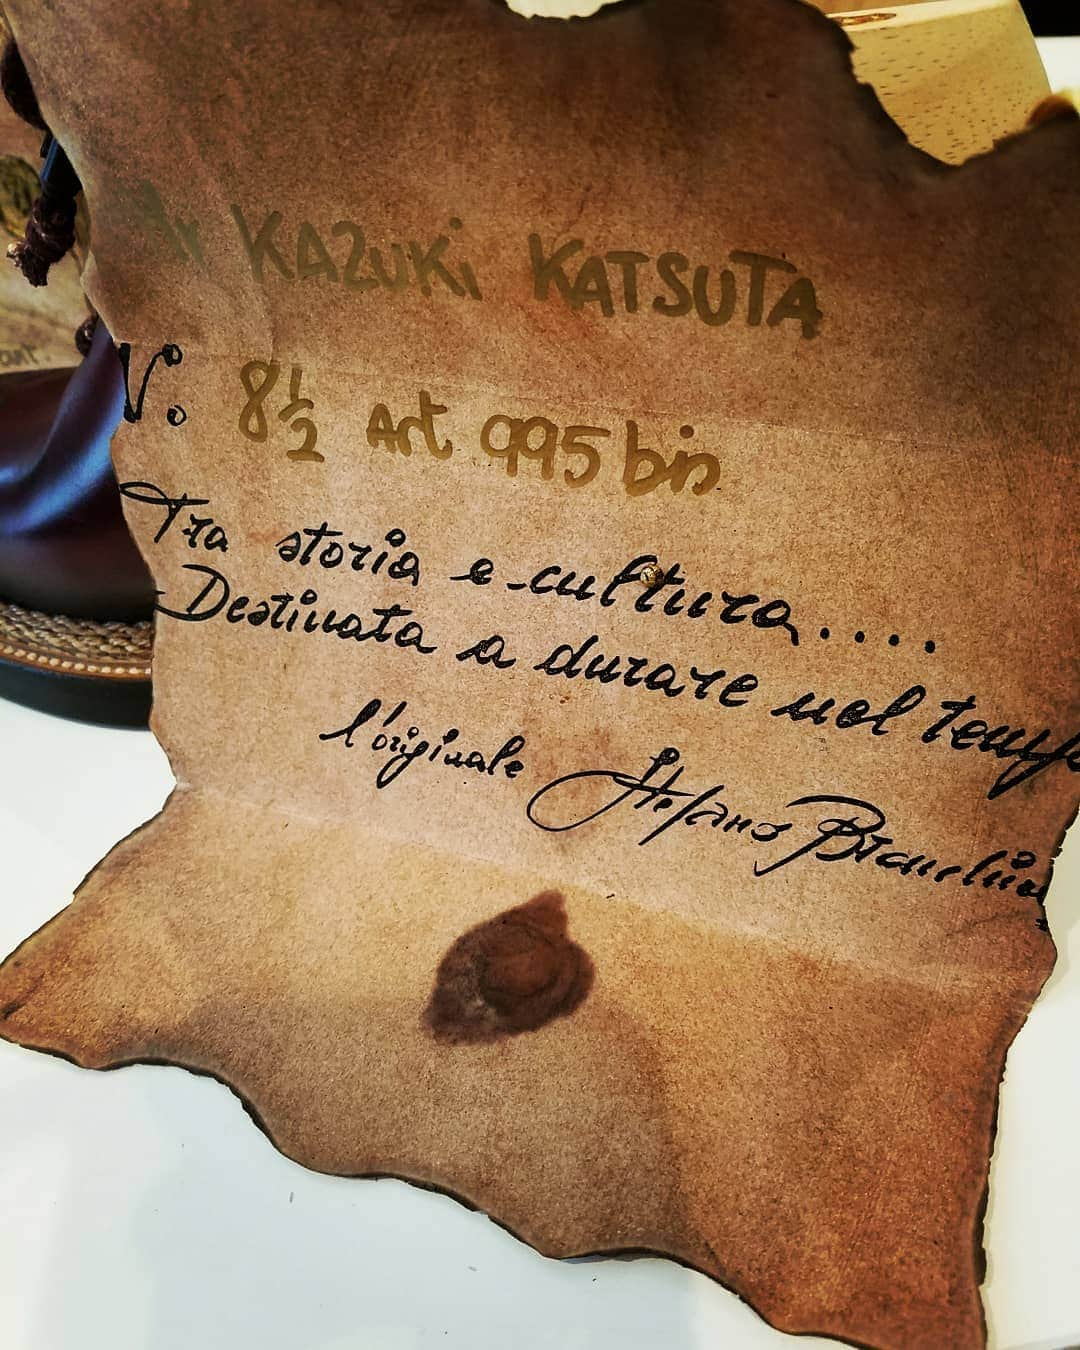 Mr KAZUKi KATSUTA
N° 8½ Art 995 bis
Tra storia e cultura....
Destinata a durare nel tempo
l'originale Stefano